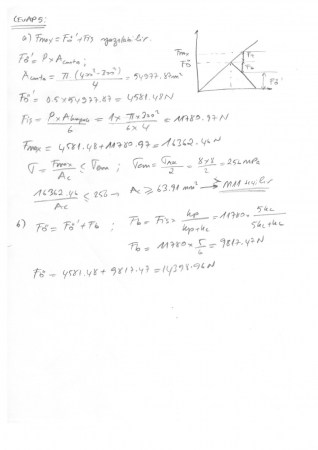 CEVAP 5:
a) Fmax = Fö' + Fiş yazılabilir.
Fö' = P x Aconta ;
Aconta = π.(400² - 300²) / 4 = 54977.87 mm²
Fö' = 0.5 x 54977.87 = 4581.48 N
Fiş = P x A / 6 = 1 x π x 300² / 6 x 4 = 11780.97 N
Fmax = 4581.48 + 11780.97 = 16362.46 N
σ = Fmax / Ac ≤ σem ; σem = σAk / 2 = 8x8 / 2 = 256 MPa
16362.46 / Ac ≤ 256 → Ac ≥ 63.91 mm² → M11
b) Fö = Fö' + Fb ; Fb = Fiş x kp / kp + kc = 11780 x 5kc / 5kc + kc
Fb = 11780 x 5 / 6 = 9817.47 N
Fö = 4581.48 + 9817.47 = 14398.96 N
Fmax
Fö